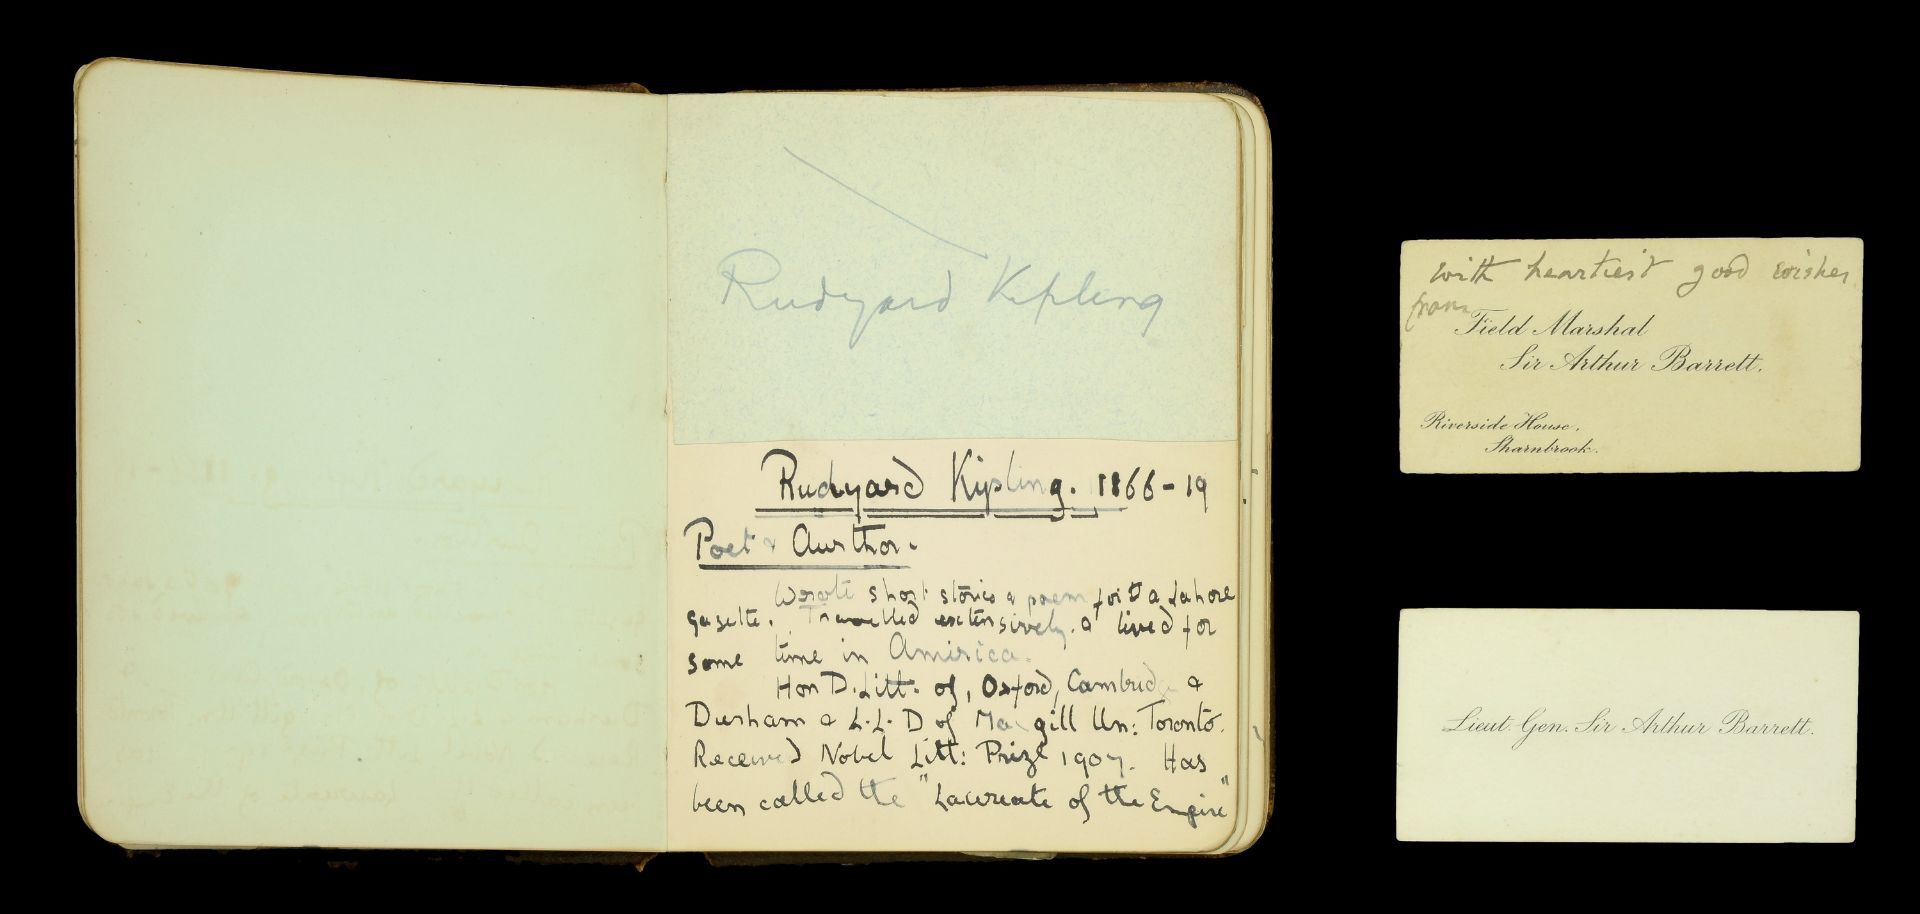 Rudyard Kipling
Rudyard Kipling. 1866-19
Poet & Author.
Wrote short stories & poem for a Lahore
gazette. Travelled extensively. & lived for
some time in America.
Hon D.Litt. of, Oxford, Cambridge &
Durham & L.L.D of Macgill Un: Toronto.
Received Nobel Litt: Prize 1907. Has
been called the "Laureate of the Empire"
with heartiest good wishes
from
Field Marshal
Sir Arthur Barrett.
Riverside House,
Sharnbrook.
Lieut. Gen. Sir Arthur Barrett.